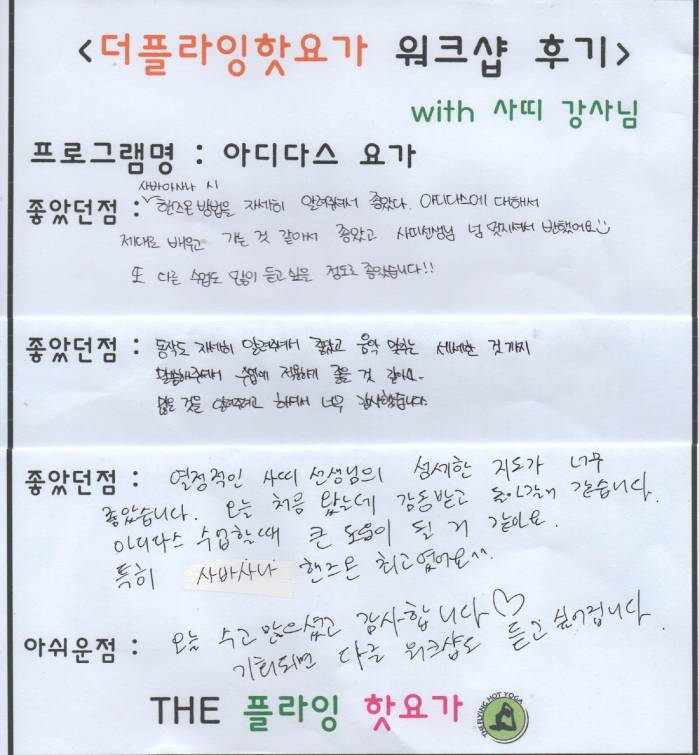 <더플라잉핫요가 워크샵 후기>
with 사띠 강사님
프로그램명 : 아디다스 요가
사바아사나 시
좋았던점 : 핸즈온 방법을 자세히 알려줘서 좋았다. 아디다스에 대해서
제대로 배우고 가는 것 같아서 좋았고 사띠선생님 넘 멋지셔서 반했어요
또 다른 수업도 많이 듣고싶을 정도로 좋았습니다!!
좋았던점 : 동작도 자세히 알려줘서 좋았고 음악 맞추는 세세한 것까지
말씀해주셔서 수업에 적용하게 좋을 것 같아요.
많은 것을 알려주려고 하셔서 너무 감사했습니다.
좋았던점 : 열정적인 사띠 선생님의 섬세한 지도가 너무
좋았습니다. 오늘 처음 왔는데 감동받고 돌아갈거 같습니다.
아디다스 수업할때 큰 도움이 될 거 같아요.
특히 사바사나 핸즈온 최고였어요^^.
아쉬운점 : 오늘 수고 많으셨고 감사합니다♡
기회되면 다른 워크샵도 듣고 싶어집니다.
THE 플라잉 핫요가
THE FLYING HOT YOGA